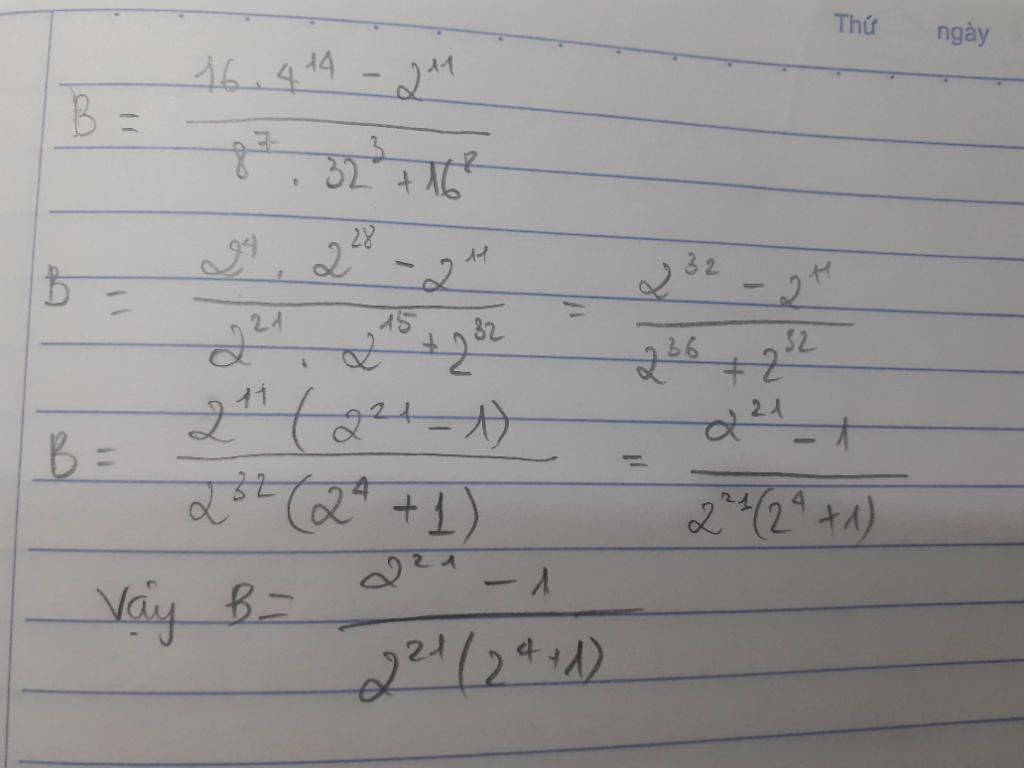 Thứ ngày
B = \frac{16 . 4^{14} - 2^{11}}{8^7 . 32^3 + 16^8}
B = \frac{2^4 . 2^{28} - 2^{11}}{2^{21} . 2^{15} + 2^{32}} = \frac{2^{32} - 2^{11}}{2^{36} + 2^{32}}
B = \frac{2^{11} (2^{21} - 1)}{2^{32} (2^4 + 1)} = \frac{2^{21} - 1}{2^{21} (2^4 + 1)}
Vậy B = \frac{2^{21} - 1}{2^{21} (2^4 + 1)}